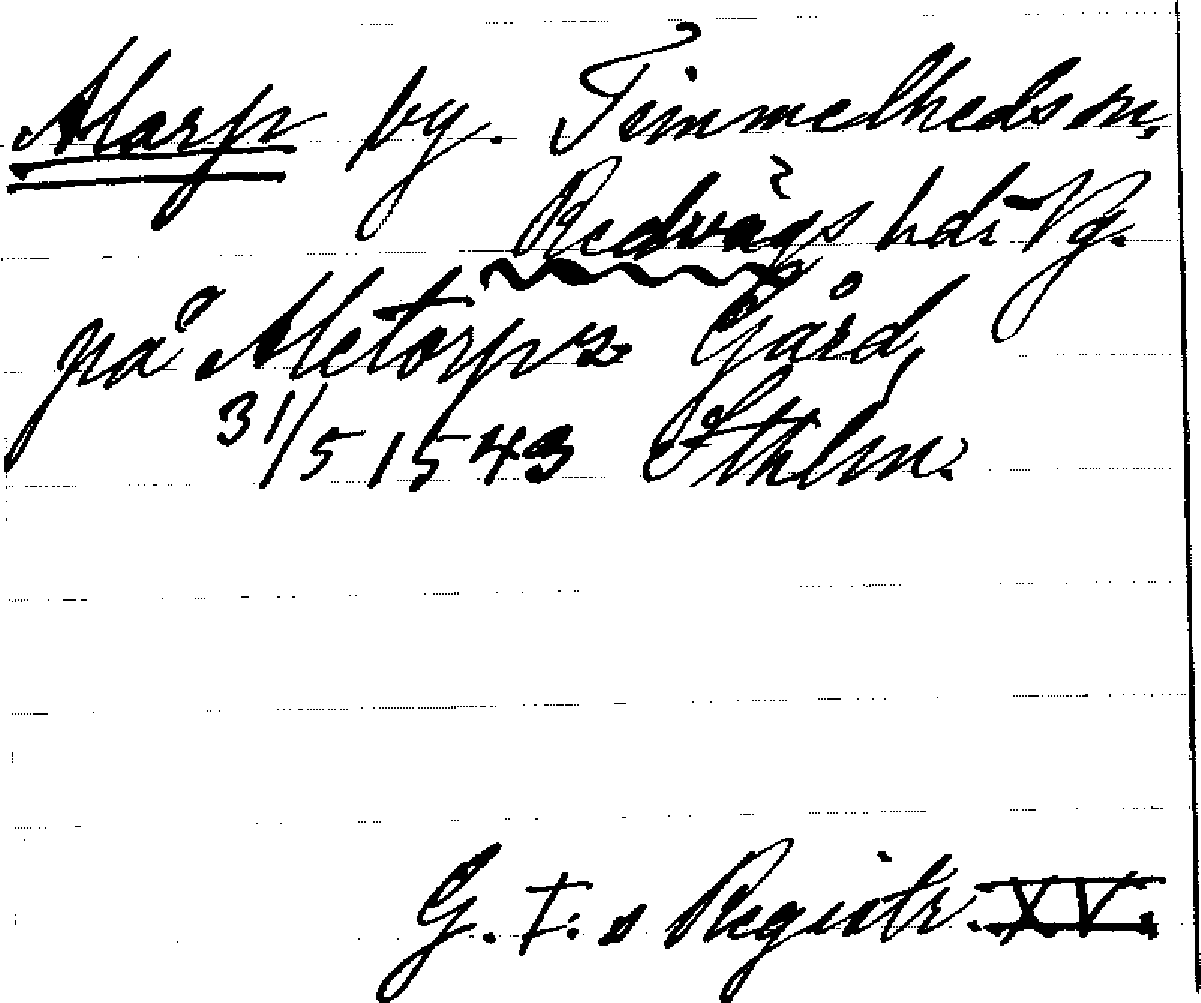 Alarp by. Timmelheds sn.
Redvägs hd. Vg.
på Aletorps Gård,
31/5 1543 Sthlm.
G. I:s Registr. XV.